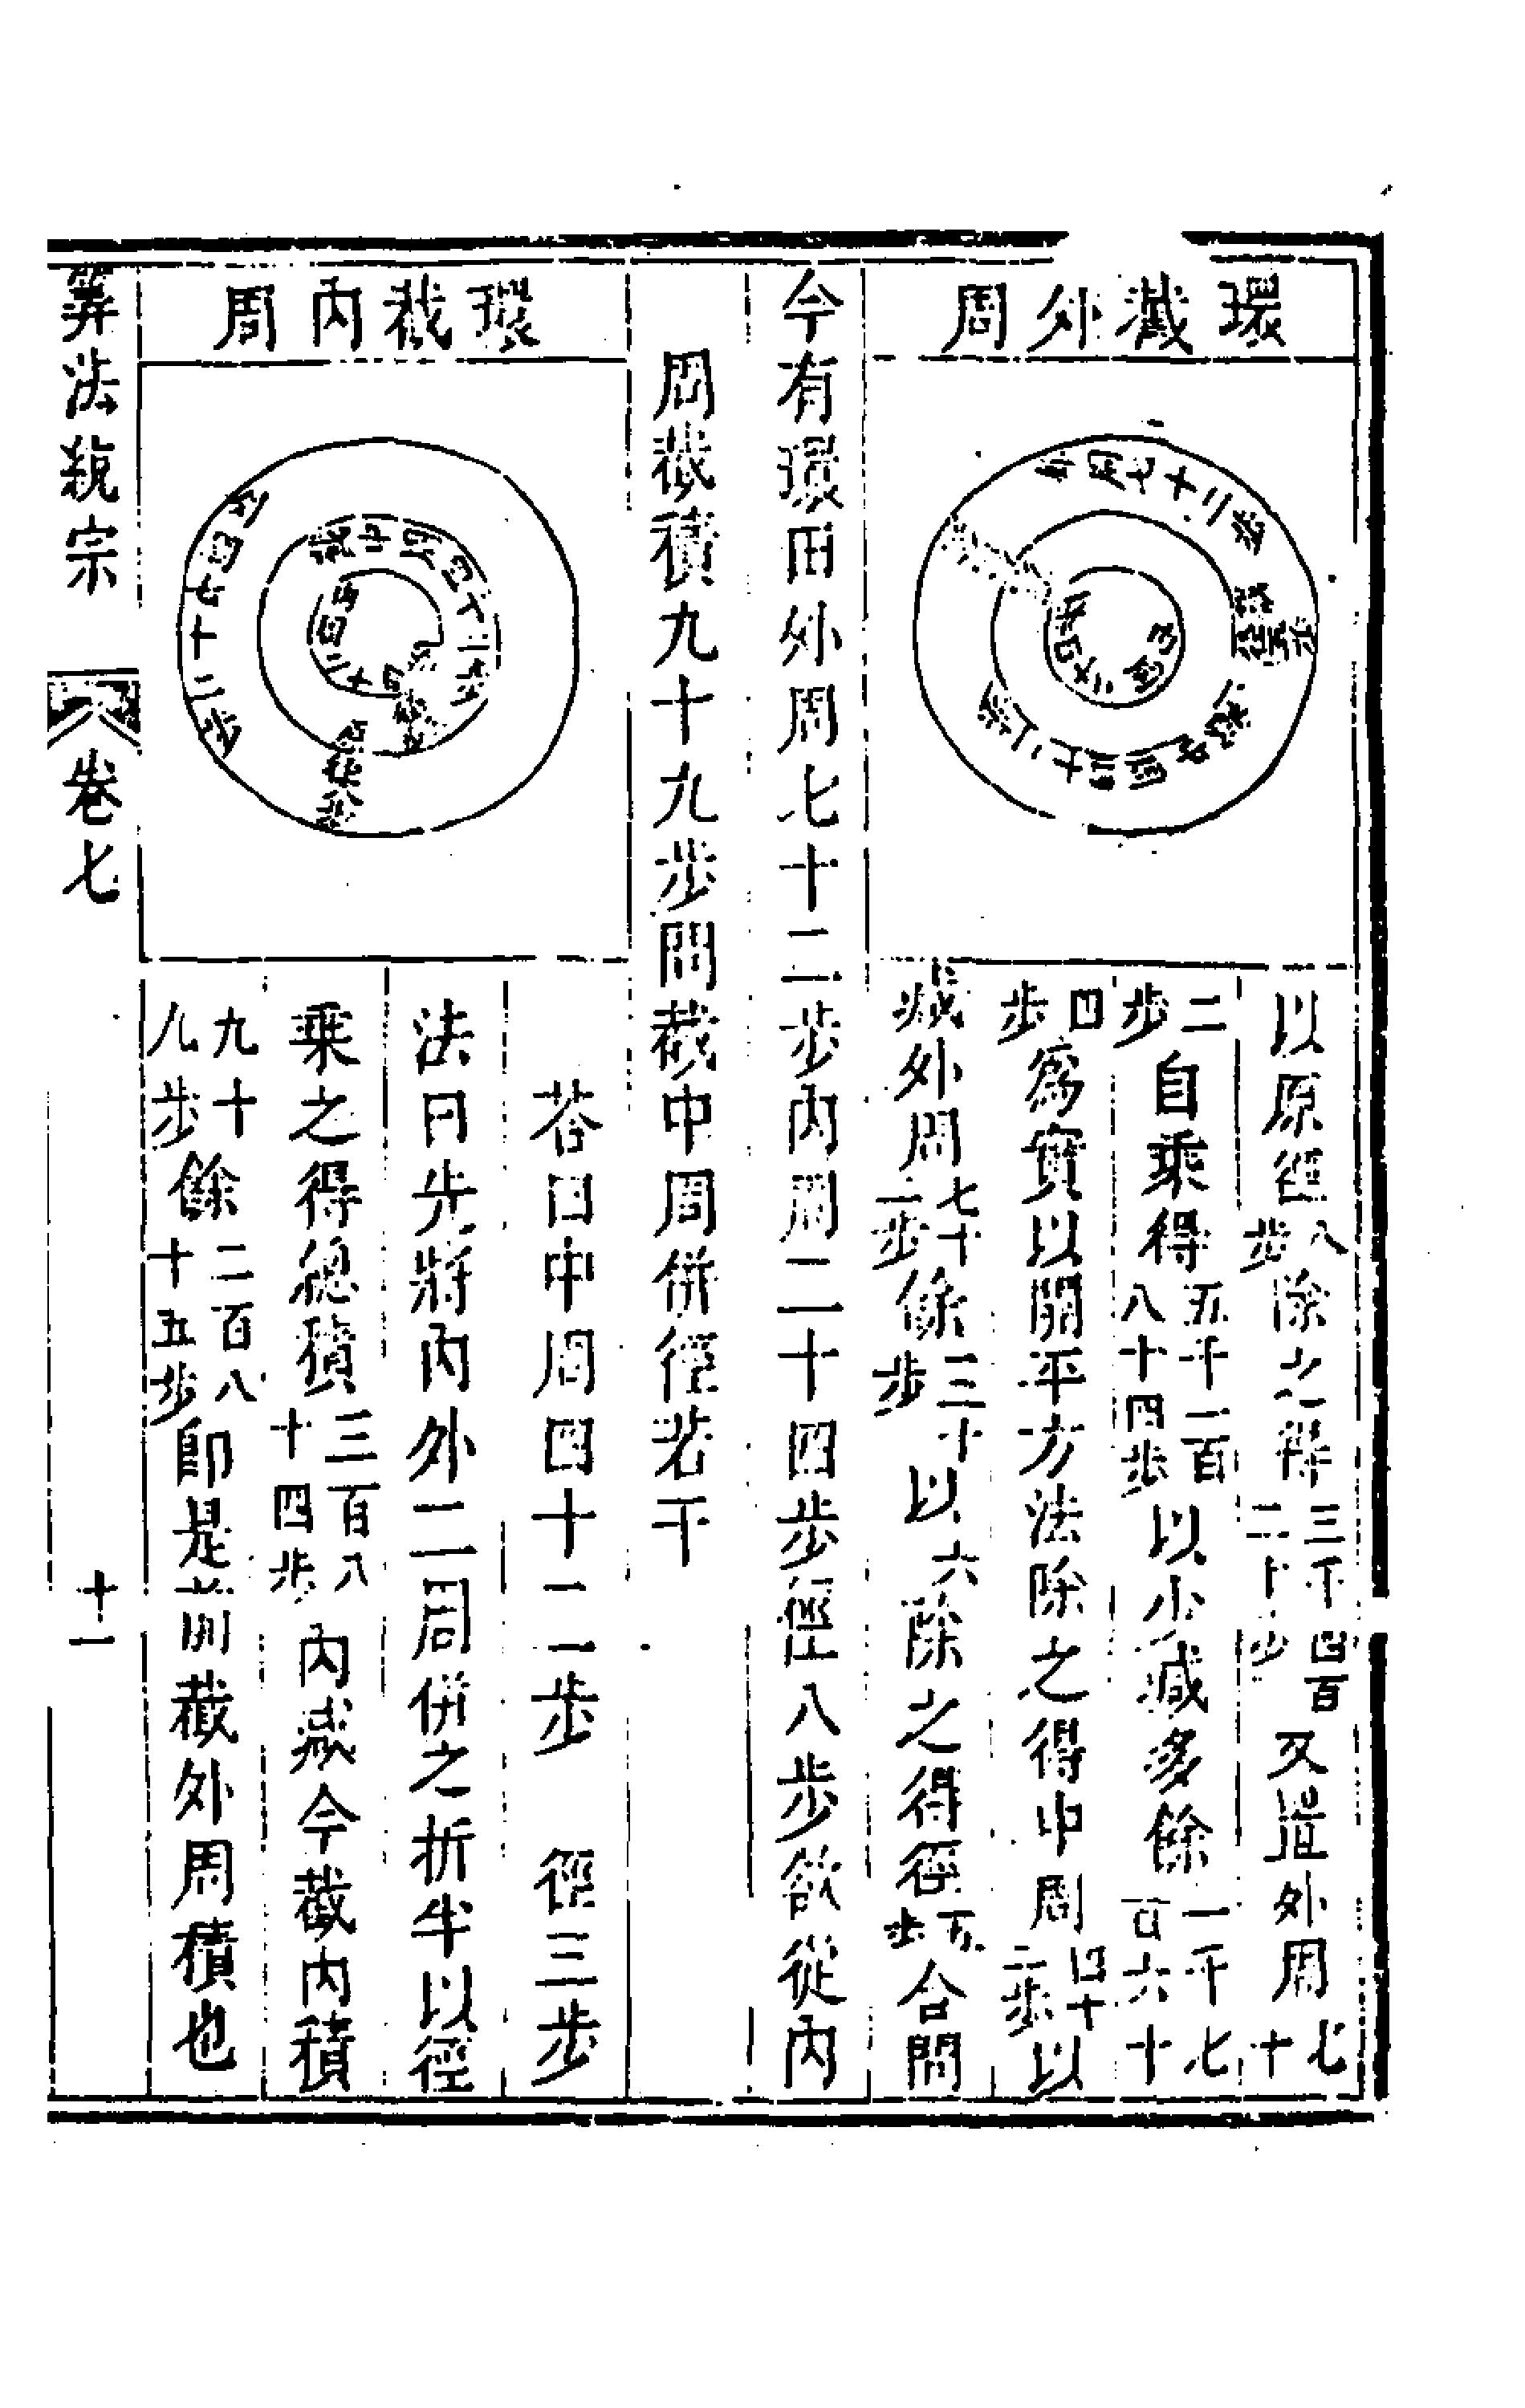 環截外周
以原徑八步除之得三千四百二十步又置外周七十
二步自乘得五千一百八十四步以少減多餘一千七百六十
四步爲實以開平方法除之得中周四十二步以
減外周七十二步餘三十步以六除之得徑五步合問
今有環田外周七十二步內周二十四步徑八步欲從內
周截積九十九步問截中周併徑若干
環截內周
外周七十二步
答曰中周四十二步 徑三步
法曰先將內外二周併之折半以徑
乘之得總積三百八十四步內減今截內積
九十九步餘二百八十五步即是前截外周積也
算法統宗 卷七 十一